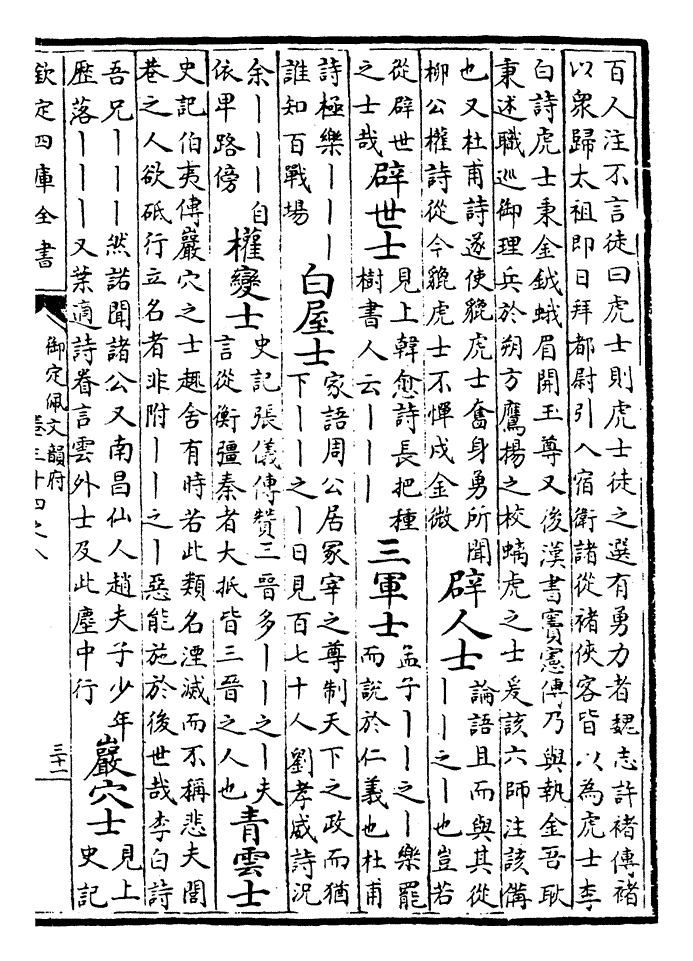 百人注不言徒曰虎士則虎士徒之選有勇力者魏志許褚傳褚
以衆歸太祖即日拜都尉引入宿衛諸從褚俠客皆以為虎士李
白詩虎士秉金鉞蛾眉開玉尊又後漢書竇憲傳乃與執金吾耿
秉述職巡御理兵於朔方鷹揚之校螭虎之士爰該六師注該備
也又杜甫詩遂使貔虎士奮身勇所聞
柳公權詩從今貔虎士不憚戍金微
辟人士
論語且而與其從
丨丨之丨也豈若
從辟世
之士哉
辟世士
見上韓愈詩長把種
樹書人云丨丨丨
三軍士
孟子丨丨之丨樂罷
而說於仁義也杜甫
詩極樂丨丨丨
誰知百戰場
白屋士
家語周公居冢宰之尊制天下之政而猶
下丨丨之丨日見百七十人劉孝威詩況
余丨丨丨自
依卑路傍
權變士
史記張儀傳贊三晉多丨丨之丨夫
言從衡彊秦者大抵皆三晉之人也
青雲士
史記伯夷傳巖穴之士趣舍有時若此類名湮滅而不稱悲夫閭
巷之人欲砥行立名者非附丨丨之丨惡能施於後世哉李白詩
吾兄丨丨丨然諾聞諸公又南昌仙人趙夫子少年
歷落丨丨丨又葉適詩眷言雲外士及此塵中行
巖穴士
見上
史記
欽定四庫全書
御定佩文韻府
卷三十四之八
三十一